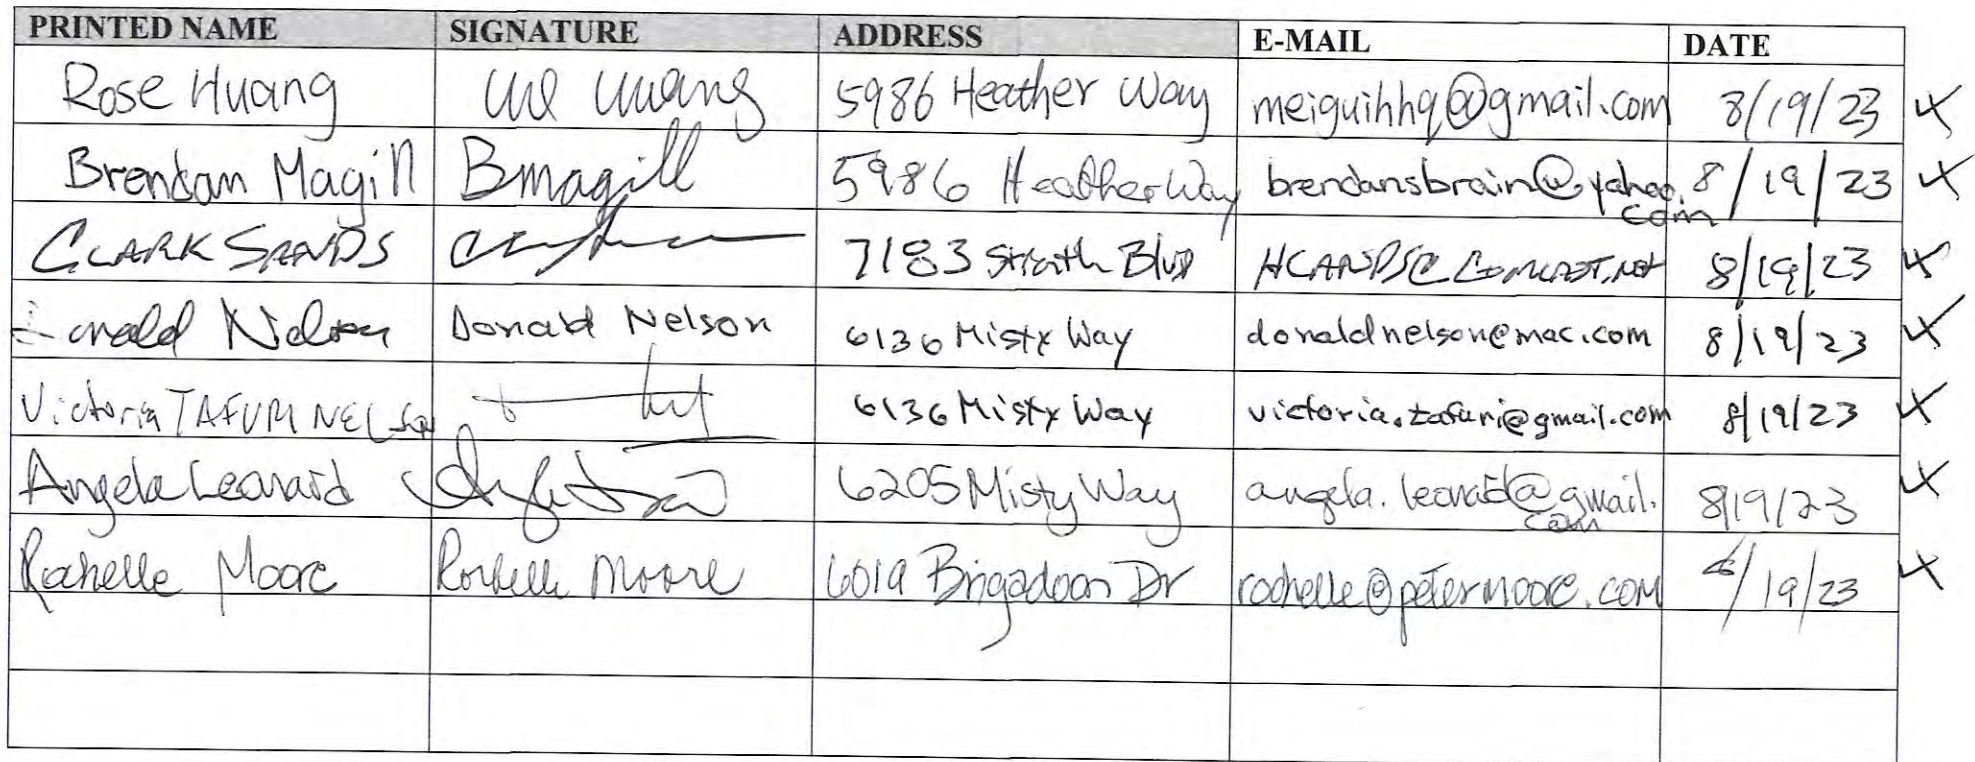 PRINTED NAME SIGNATURE ADDRESS E-MAIL DATE
Rose Huang 5986 Heather Way meiguihhq@gmail.com 8/19/23
Brendan Magill BMagill 5986 Heather Way brendansbrain@yahoo. 8/19/23
com
CLARK SANDS 7183 Blvd 8/19/23
Donald Nelson Donald Nelson 6136 Misty Way donaldnelson@mac.com 8/19/23
Victoria TAFURI NELSON 6136 Misty Way victoria.tafuri@gmail.com 8/19/23
Angela Leonard 6205 Misty Way angela.leonard@gmail. 8/19/23
com
Rochelle Moore Rochelle Moore 6019 Brigadoon Dr rochelle@petermoore.com 8/19/23